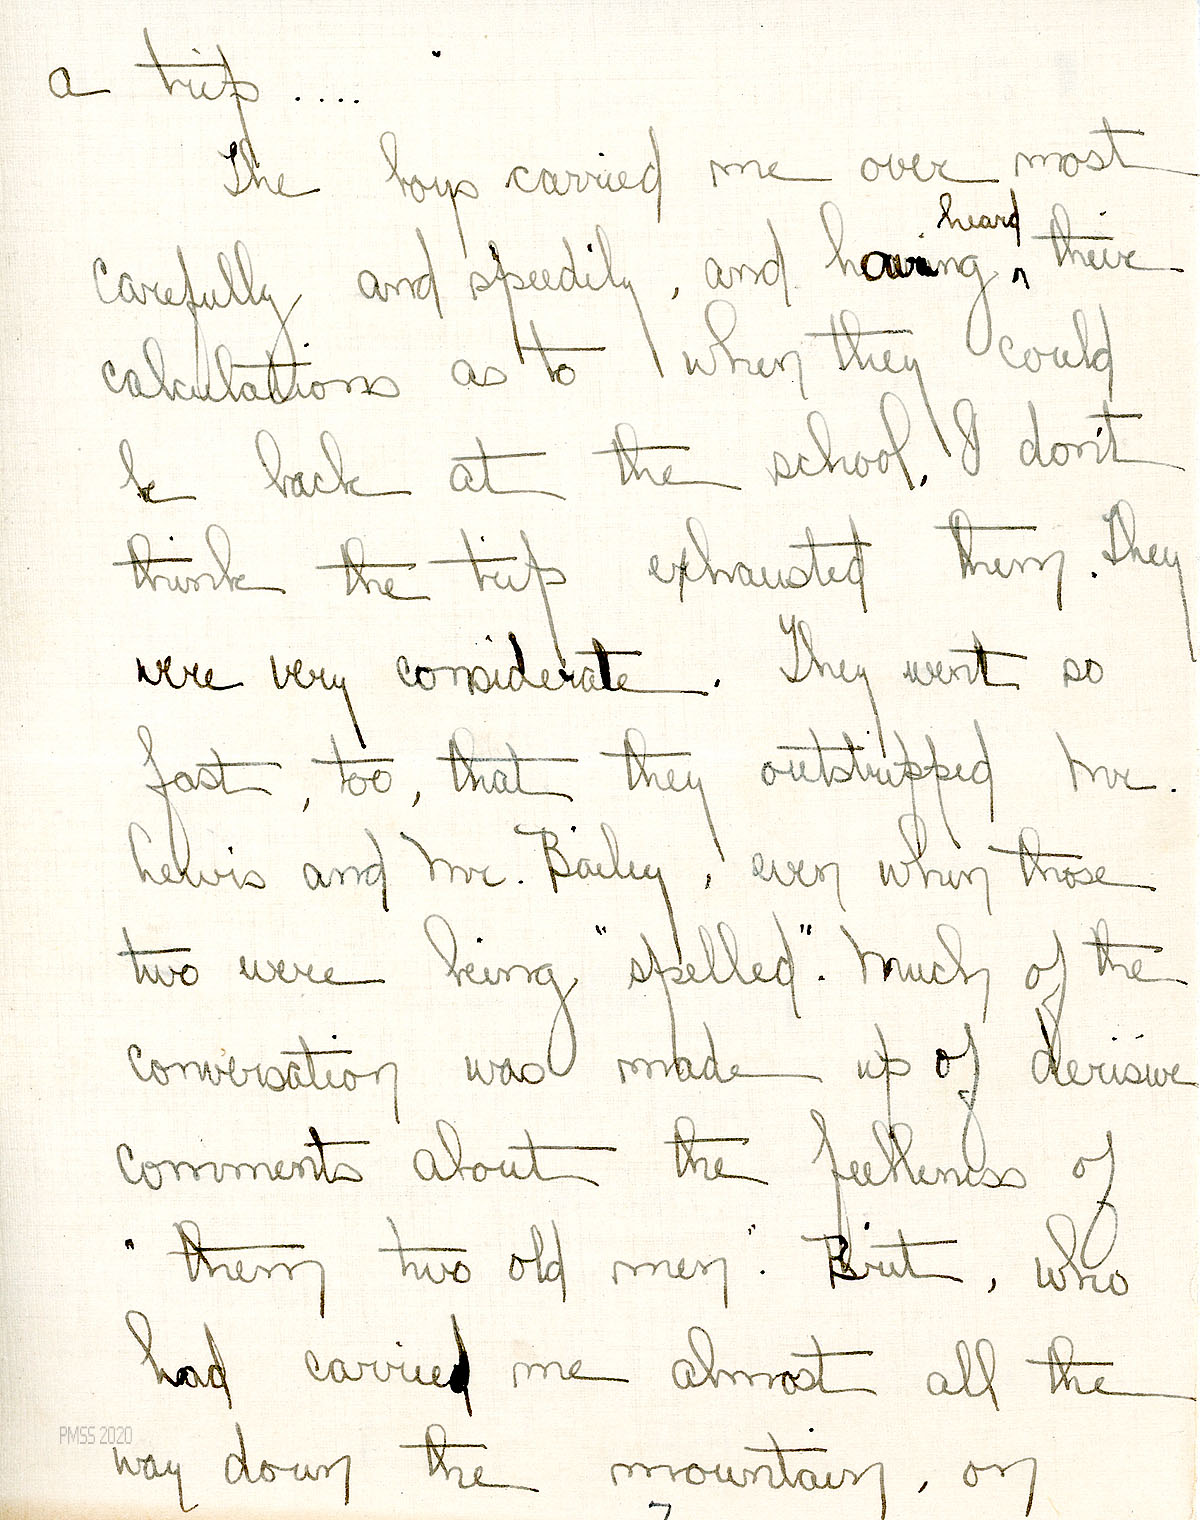 a trip ....
The boys carried me over most
heard
carefully and speedily, and having ^ their
calculations as to when they could
be back at the school, I don't
think the trip exhausted them. They
were very considerate. They went so
fast, too, that they outstripped Mr.
Lewis and Mr. Bailey, even when those
two were being "spelled". Much of the
conversation was made up of derisive
comments about the feebleness of
"them two old men". Brit, who
had carried me almost all the
PMSS 2020
way down the mountain, on